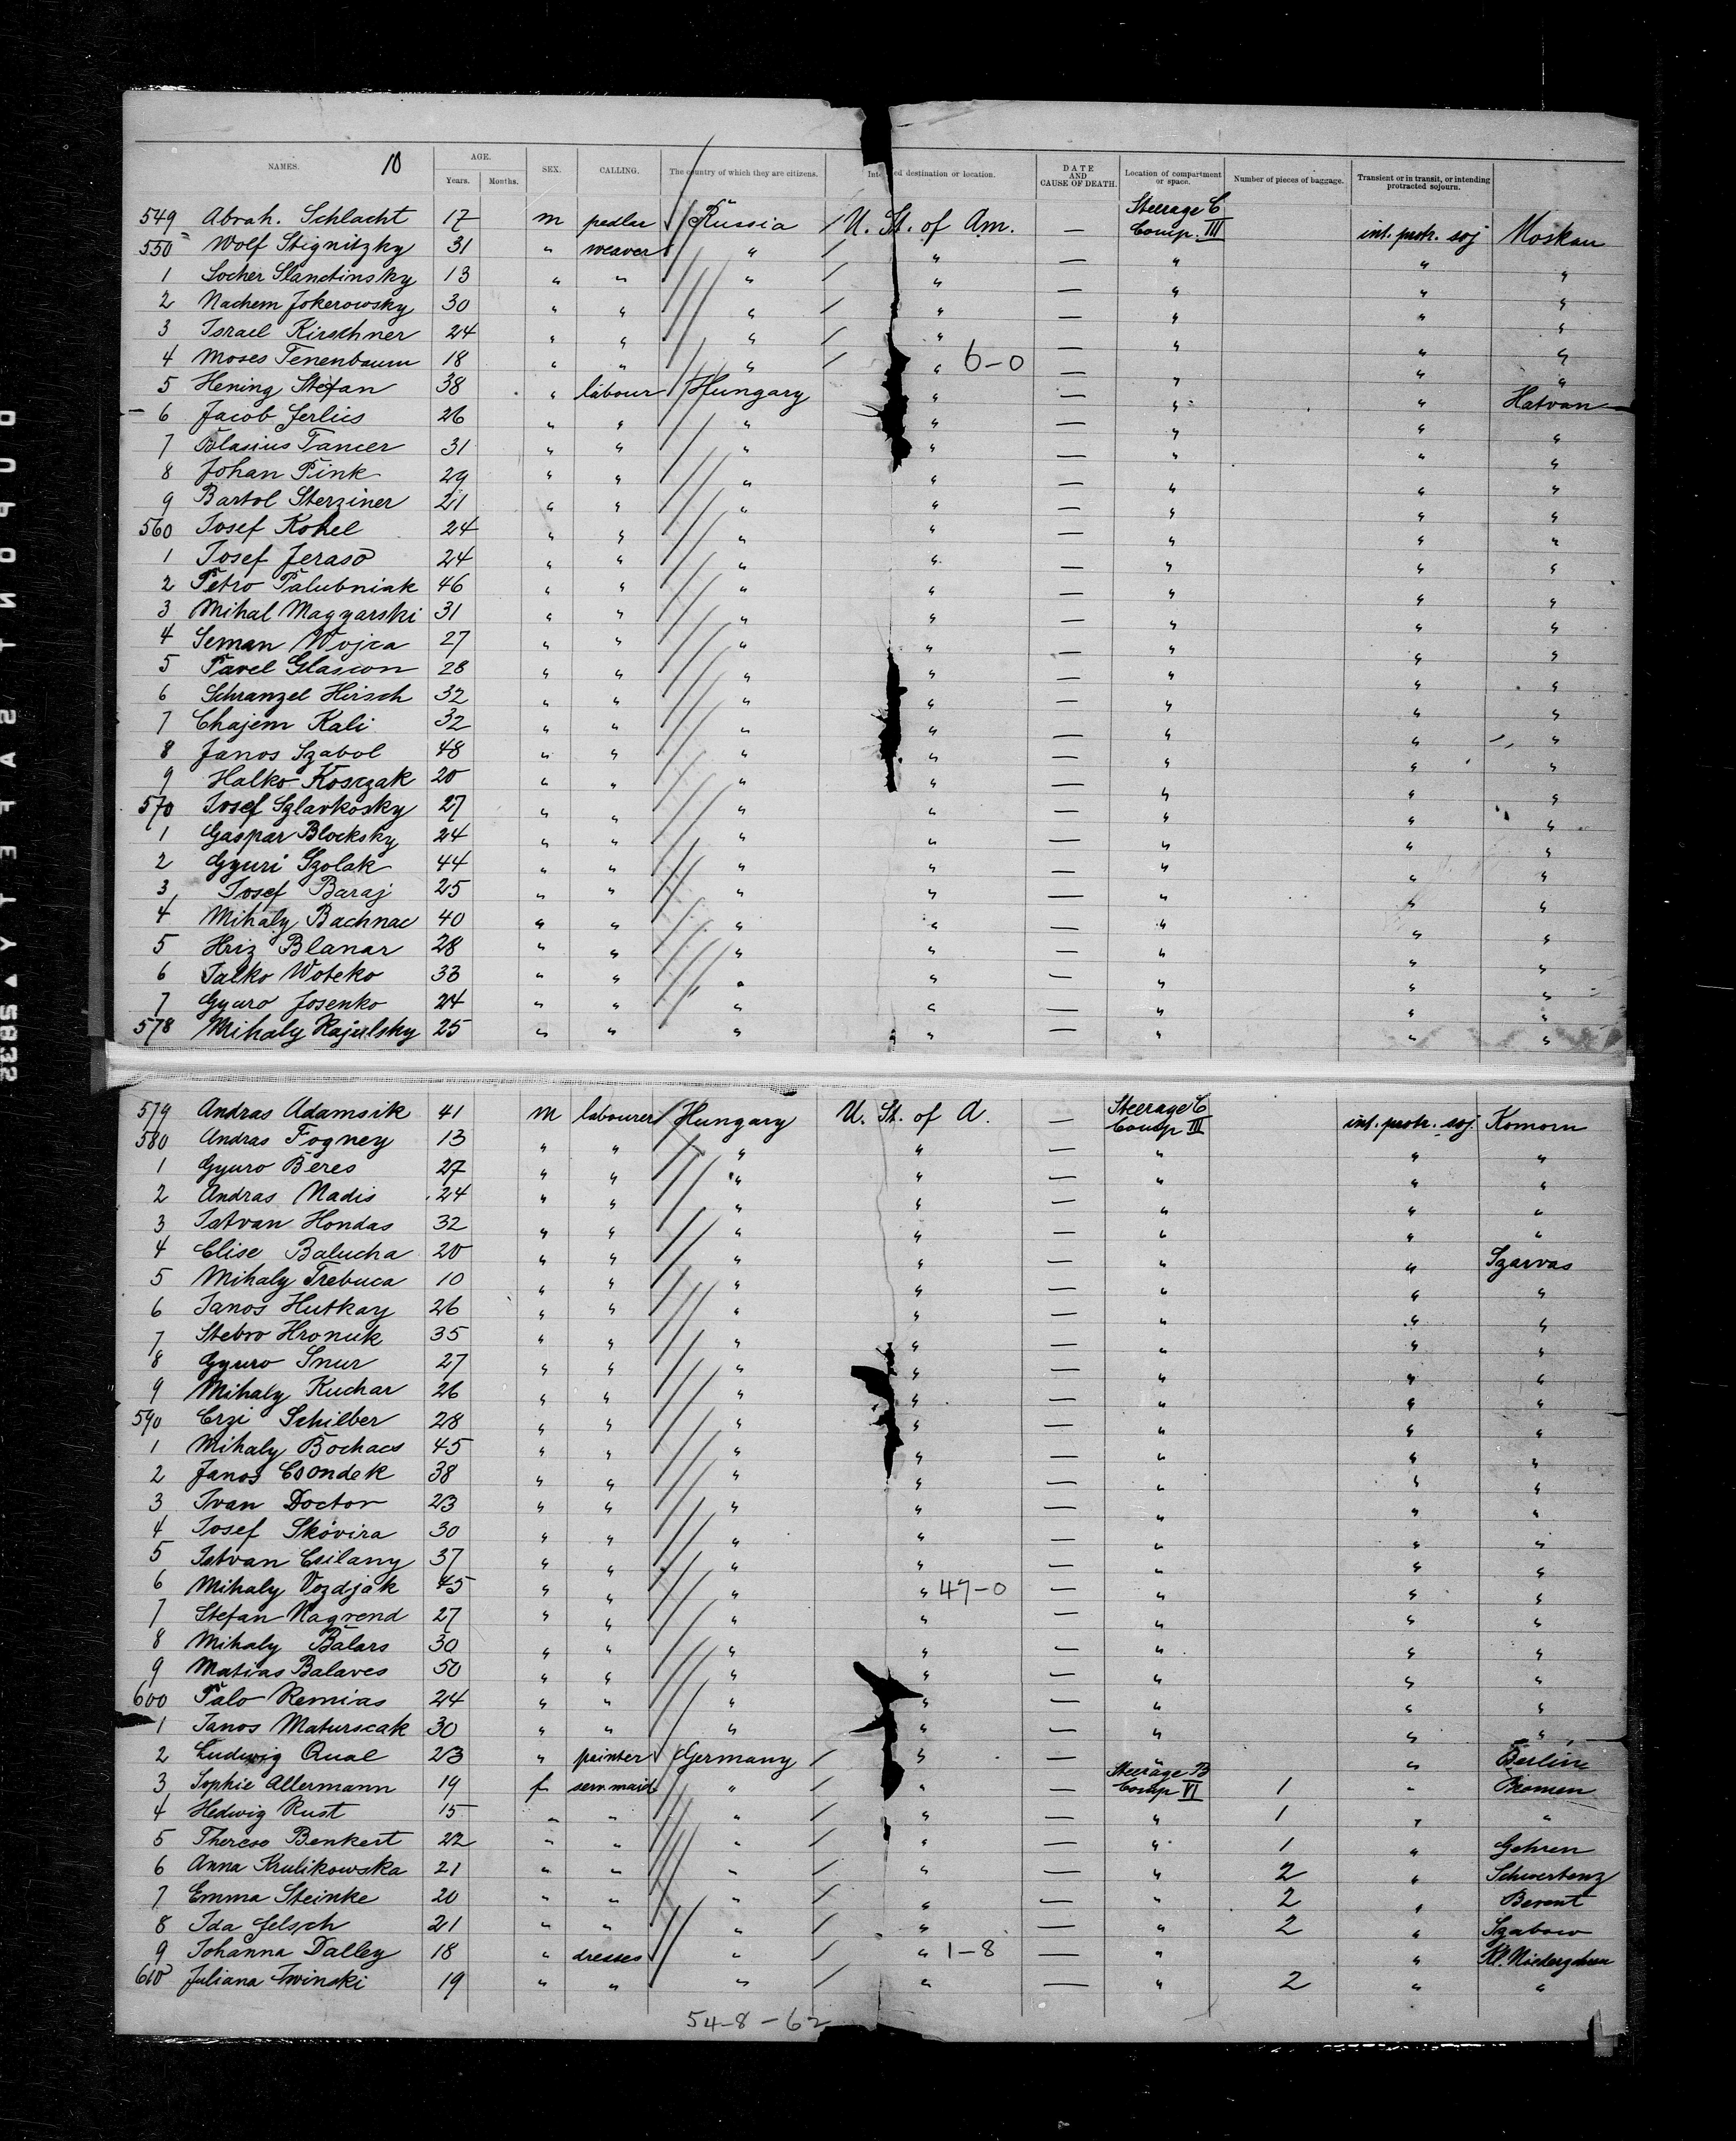 NAMES. 10 AGE. Years. Months. SEX. CALLING. The country of which they are citizens. Intended destination or location. DATE AND CAUSE OF DEATH. Location of compartment or space. Number of pieces of baggage. Transient or in transit, or intending protracted sojourn.
549 Abrah. Schlacht 17 m pedlar Russia U. St. of Am. — Steerage C Comp. III int. protr. soj Moskau
550 Wolf Stignitzky 31 " weaver " " — " " "
1 Socher Slanctinsky 13 " " " " — " " "
2 Nachem Jokerowsky 30 " " " " — " " "
3 Israel Kirschner 24 " " " " — " " "
4 Moses Tenenbaum 18 " " " " 6-0 — " " "
5 Hening Stefan 38 " labour Hungary " — " " Hatvan
6 Jacob Jerlics 26 " " " " — " " "
7 Blasius Tancer 31 " " " " — " " "
8 Johan Pink 29 " " " " — " " "
9 Bartol Sterziner 21 " " " " — " " "
560 Josef Kohel 24 " " " " — " " "
1 Josef Jeraso 24 " " " " — " " "
2 Petro Palubniak 46 " " " " — " " "
3 Mihal Magyarski 31 " " " " — " " "
4 Seman Wojca 27 " " " " — " " "
5 Pavel Glascon 28 " " " " — " " "
6 Schranzel Hirsch 32 " " " " — " " "
7 Chajem Kali 32 " " " " — " " "
8 Janos Szabol 48 " " " " — " " "
9 Halko Kosczak 20 " " " " — " " "
570 Josef Szlavkosky 27 " " " " — " " "
1 Gaspar Blocksky 24 " " " " — " " "
2 Gyuri Szolak 44 " " " " — " " "
3 Josef Baraj 25 " " " " — " " "
4 Mihaly Bachnac 40 " " " " — " " "
5 Hriz Blanar 28 " " " " — " " "
6 Jalko Woteko 33 " " " " — " " "
7 Gyuro Josenko 24 " " " " — " " "
578 Mihaly Rajulsky 25 " " " " — " " "
579 Andras Adamsik 41 m labourer Hungary U. St. of A. — Steerage C Comp III int. protr. soj. Komorn
580 Andras Fogney 13 " " " " — " " "
1 Gyuro Beres 27 " " " " — " " "
2 Andras Nadis 24 " " " " — " " "
3 Istvan Hondas 32 " " " " — " " "
4 Elise Balucha 20 " " " " — " " Szarvas
5 Mihaly Trebuca 10 " " " " — " " "
6 Janos Hutkay 26 " " " " — " " "
7 Stebro Hronuk 35 " " " " — " " "
8 Gyuro Snur 27 " " " " — " " "
9 Mihaly Kuchar 26 " " " " — " " "
590 Erzi Schilber 28 " " " " — " " "
1 Mihaly Bochacs 45 " " " " — " " "
2 Janos Csondek 38 " " " " — " " "
3 Ivan Doctor 23 " " " " — " " "
4 Josef Skovira 30 " " " " — " " "
5 Istvan Csilany 37 " " " " — " " "
6 Mihaly Vozdjak 45 " " " " 47-0 — " " "
7 Stefan Nagrend 27 " " " " — " " "
8 Mihaly Balars 30 " " " " — " " "
9 Matias Balaves 50 " " " " — " " "
600 Palo Remias 24 " " " " — " " "
1 Janos Maturscak 30 " " " " — " " "
2 Ludwig Qual 23 " painter Germany " — " " Berlin
3 Sophie Allermann 19 f serv. maid " " — Steerage B Comp VI 1 " Bremen
4 Hedwig Rust 15 " " " " — " 1 " "
5 Therese Benkert 22 " " " " — " 1 " Gehren
6 Anna Krulikowska 21 " " " " — " 2 " Schwertenz
7 Emma Steinke 20 " " " " — " 2 " Berent
8 Ida Jelsch 21 " " " " — " 2 " Szabow
9 Johanna Dalley 18 " dresses " " 1-8 — " " Kl.
610 Juliana Iwinski 19 " " " " — " 2 " "
54-8-62